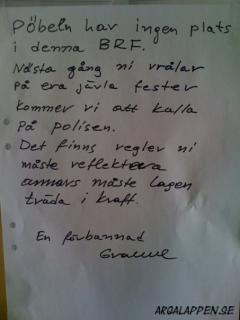 Pöbeln har ingen plats
i denna BRF.
Nästa gång ni vrålar
på era jävla fester
kommer vi att kalla
på polisen.
Det finns regler ni
måste reflektera
annars måste lagen
träda i kraft.
En förbannad
Granne
ARGALAPPEN.SE